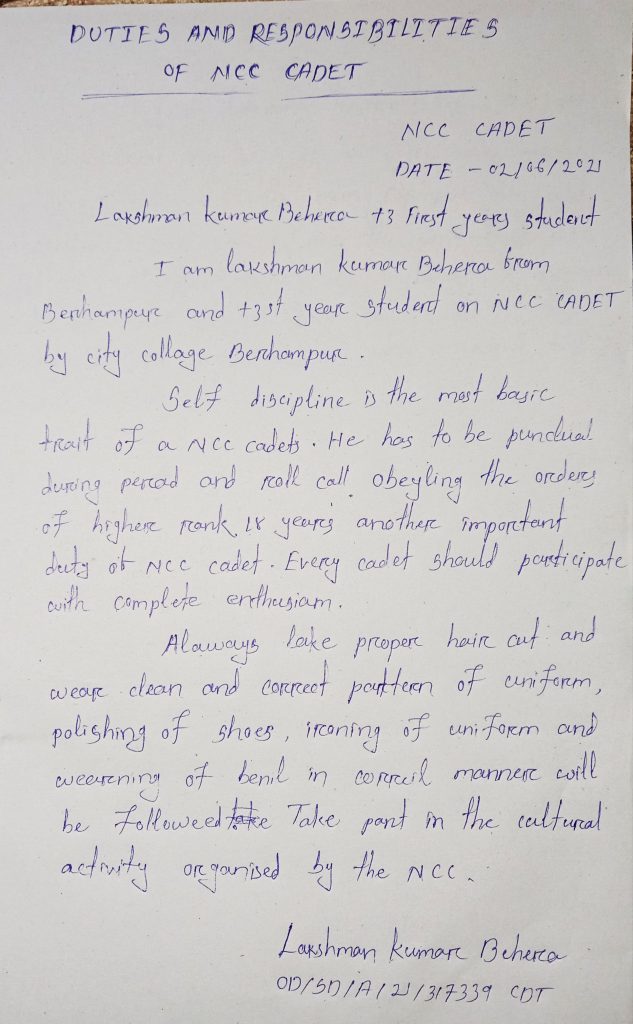 DUTIES AND RESPONSIBILITIES
OF NCC CADET
NCC CADET
DATE - 02/06/2021
Lakshman kumar Behera +3 First years student
I am lakshman kumar Behera from
Berhampur and +3st year student on NCC CADET
by city collage Berhampur.
Self discipline is the most basic
trait of a NCC cadets. He has to be punctual
during perad and roll call obeyling the orders
of higher rank, is years another important
duty of NCC cadet. Every cadet should participate
with complete enthusiam.
Alaways take proper hair cut and
wear clean and correct pattern of uniform,
polishing of shoes, ironing of uniform and
wearening of in manner will
be Followeed Take part in the cultural
activity organised by the NCC.
Lakshman kumar Behera
OD/SD/A/21/317339 CDT